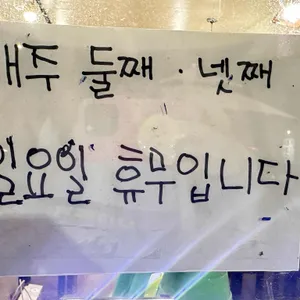 매주 둘째 · 넷째
일요일 휴무입니다